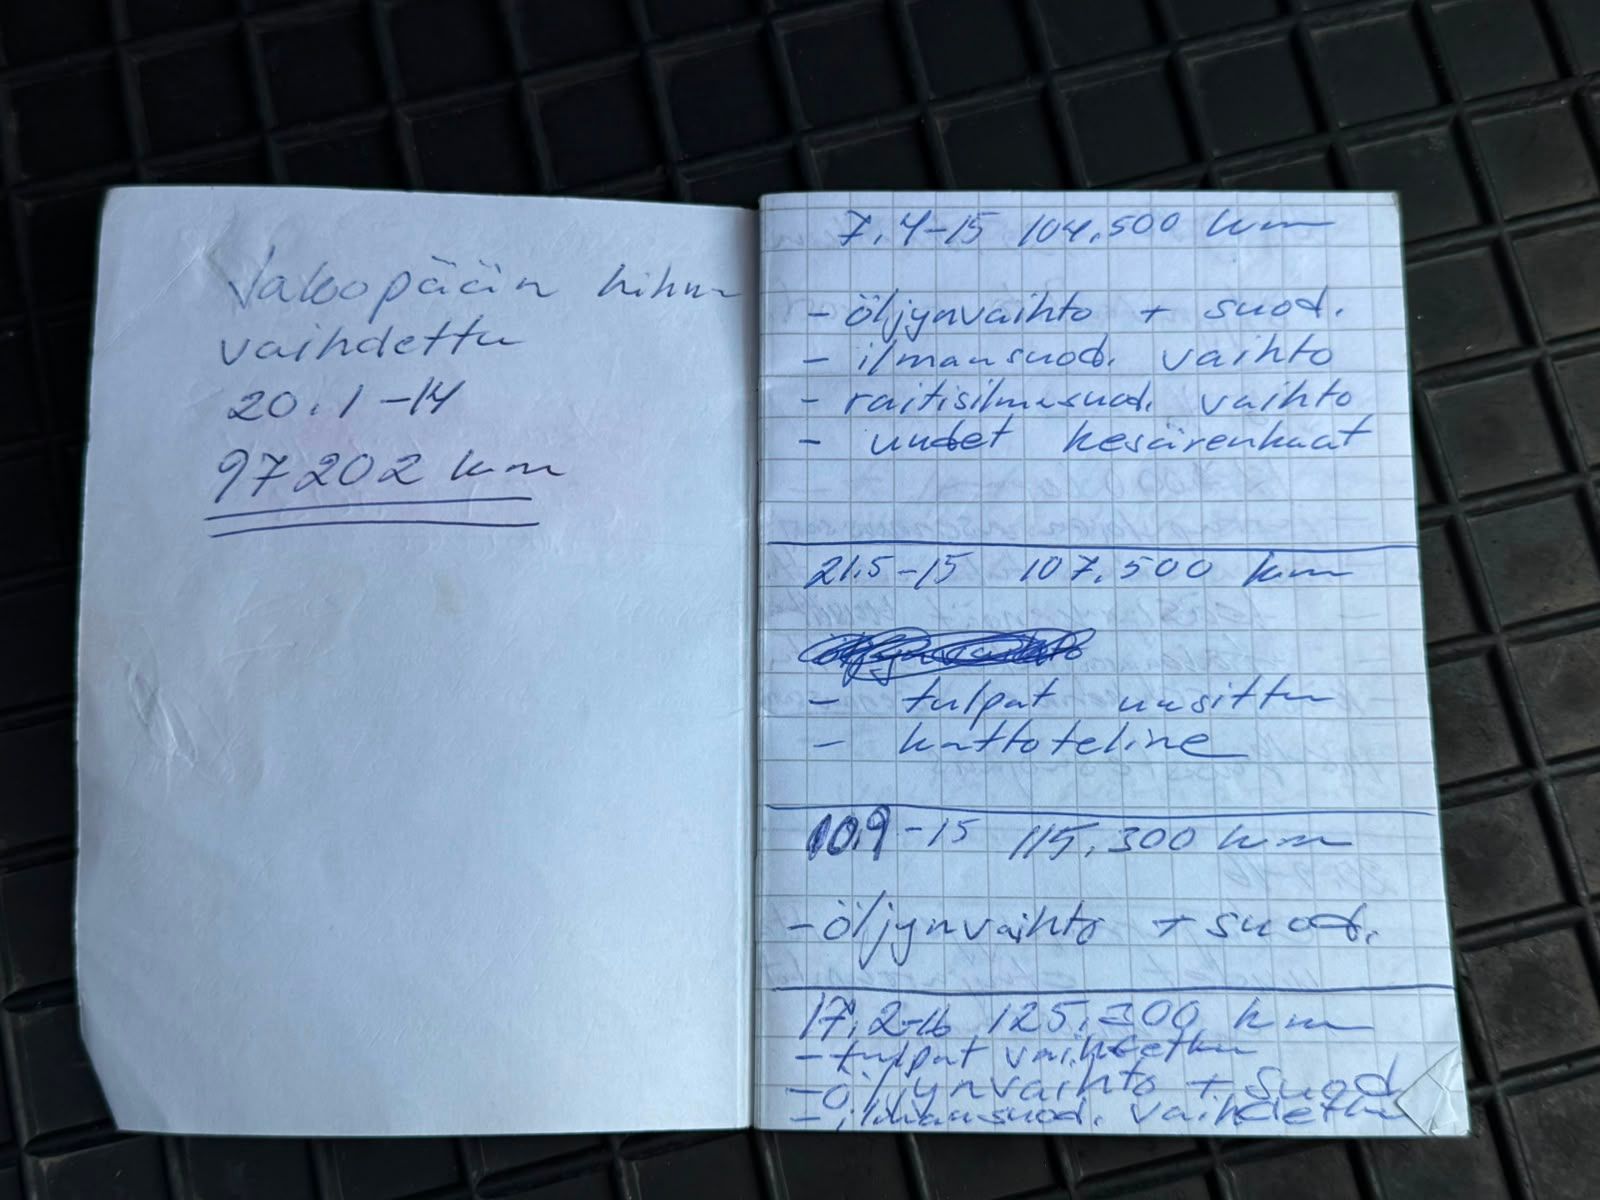 Jakopään hihna
vaihdettu
20.1-14
97202 km
7.4-15 104.500 km
- öljynvaihto + suod.
- ilmansuod. vaihto
- raitisilmasuod. vaihto
- uudet kesärenkaat
21.5-15 107.500 km
- tulpat uusittu
- kattoteline
10.9-15 115.300 km
- öljynvaihto + suod.
17.2-16 125.300 km
- tulpat vaihdettu
- öljynvaihto + suod
- ilmansuod. vaihdettu